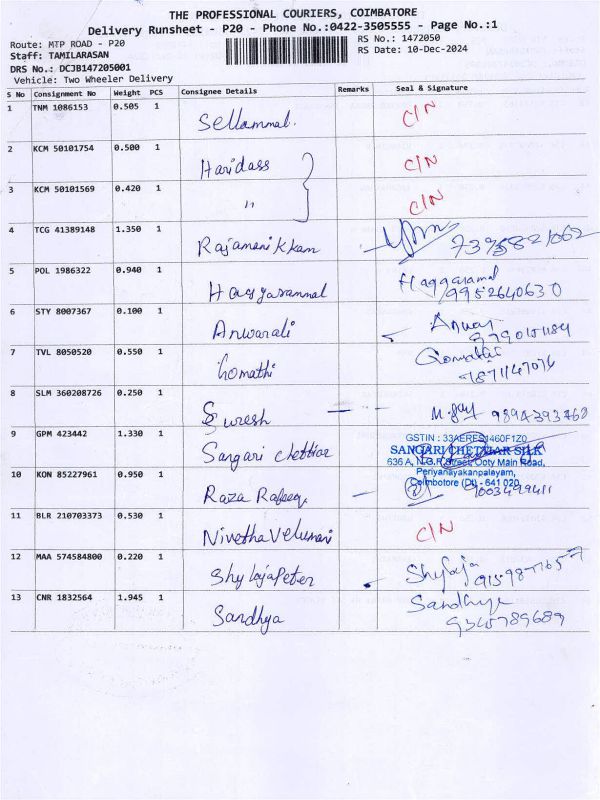 THE PROFESSIONAL COURIERS, COIMBATORE
Delivery Runsheet - P20 - Phone No.:0422-3505555 - Page No.:1
Route: MTP ROAD - P20
RS No.: 1472050
Staff: TAMILARASAN
RS Date: 10-Dec-2024
DRS No.: DCJB147205001
Vehicle: Two Wheeler Delivery
S No Consignment No Weight PCS Consignee Details Remarks Seal & Signature
1 TNM 1086153 0.505 1 Sellammal. C/N
2 KCM 50101754 0.500 1 Haridass C/N
3 KCM 50101569 0.420 1 " C/N
4 TCG 41389148 1.350 1 Rajamanikkam
5 POL 1986322 0.940 1 9952640630
6 STY 8007367 0.100 1 Anwarali Anwar
7 TVL 8050520 0.550 1 Gomathi Gomathi
8 SLM 360208726 0.250 1 Suresh
9 GPM 423442 1.330 1 Sangari chettiar
GSTIN : 33AERES1460F1Z0
SANGARI CHETTIAR SILK
636 A, N.G.R. Street, Ooty Main Road,
Periyanayakanpalayam,
Coimbotore (Dt) - 641 020
10 KON 85227961 0.950 1 Raza Rafeeq. 9003499411
11 BLR 210703373 0.530 1 Nivetha Velumani C/N
12 MAA 574584800 0.220 1 Shylaja Peter Shylaja
13 CNR 1832564 1.945 1 Sandhya Sandhya
9345789689